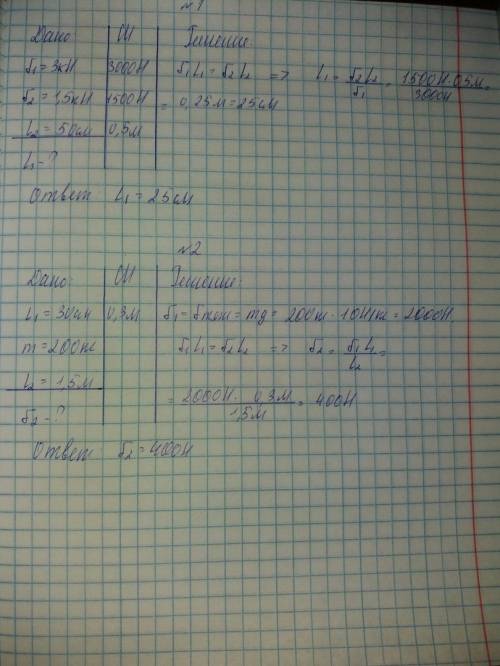 №1
Дано: СИ Решение
F₁ = 3кН 3000Н F₁L₁ = F₂L₂ => L₁ = F₂L₂/F₁ = 1500Н·0,5м/3000Н =
F₂ = 1,5кН 1500Н = 0,25м = 25см
L₂ = 50см 0,5м
L₁ - ?
Ответ: L₁ = 25см
№2
Дано: СИ Решение:
L₁ = 30см 0,3м F₁ = Fтяж = mg = 200кг · 10Н/кг = 2000Н.
m = 200кг F₁L₁ = F₂L₂ => F₂ = F₁L₁/L₂ =
L₂ = 1,5м = 2000Н · 0,3м/1,5м = 400Н
F₂ - ?
Ответ: F₂ = 400Н